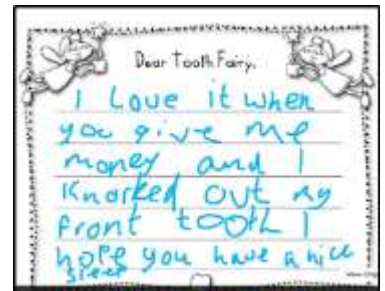 Dear Tooth Fairy,
I Love it when
you give me
money and I
Knocked out my
front tooth I
hope you have a nice
sleep